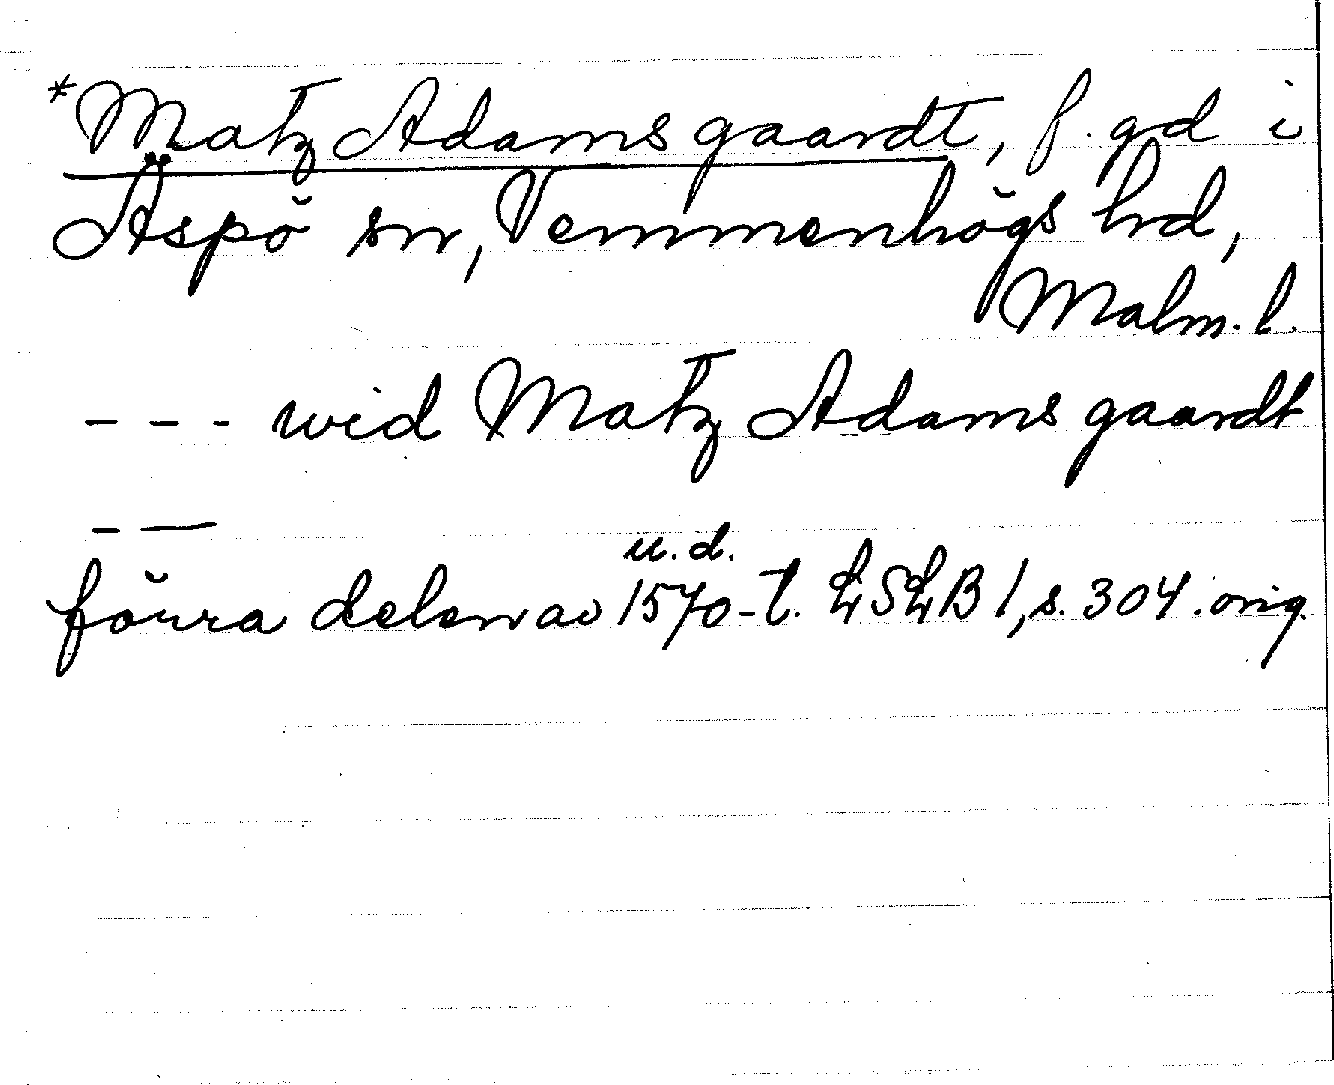 *Matz Adams gaardt, f. gd i
Äspö sn, Vemmenhögs hd,
Malm. l.
- - - wid Matz Adams gaardt
- —
u. d.
förra delen av 1570-t. LSLB 1, s. 304. orig.